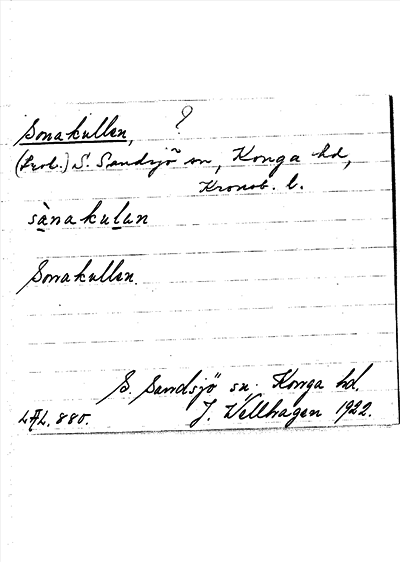 Sonakullen, ?
S. Sandsjö sn, Konga hd,
Kronob. l.
sànakulan
Sonakullen.
S. Sandsjö sn. Konga hd.
J. Wellhagen 1922.
LAL. 880.